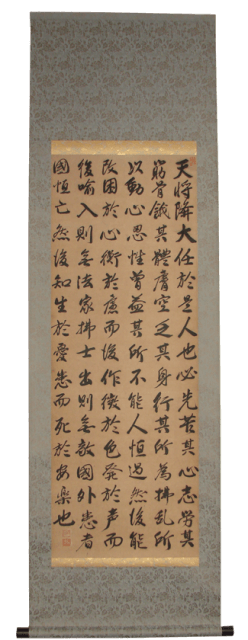 天将降大任於是人也必先苦其心志労其
筋骨餓其體膚空乏其身行其所為拂乱所
以動心忍性曾益其所不能人恒過然後能
改困於心衡於慮而後作徴於色発於声而
後喻入則無法家拂士出則無敵國外患者
國恒亡然後知生於憂患而死於安楽也